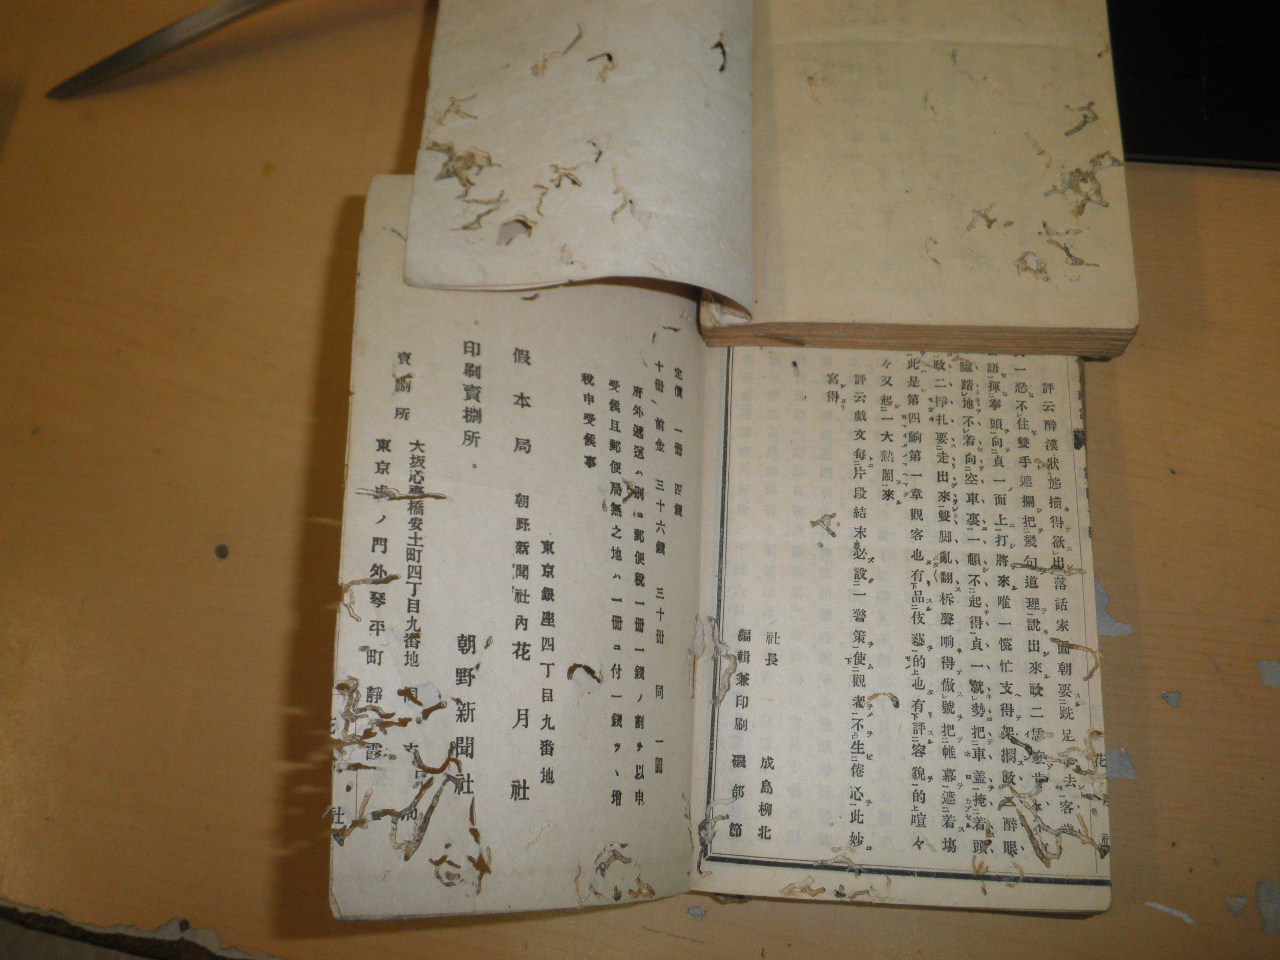 評云醉漢狀態描得欲出落話家圓朝要跣足
一忿不住雙手遮攔把幾句道理說出來政二恁
語揮拳頭向貞一面上打將來唯一慌忙支得架擱敵二醉眼
朧踏地不着向空車裏一頓不起得貞一就勢把車盖掩着頭
政二掙扎要走出來雙脚亂翻柝聲响得傲號把帷幕遮着塲
此是第四齣第一章觀客也有品伎藝的也有評容貌的喧々
々又起一大熱閙來
評云戲文每片段結末必設一警策使觀者不生倦心此妙
寫得
社長 成島柳北
編輯兼印刷 磯部節
定價 一冊 四錢
一 十冊前金 三十六錢 三十冊 同 一圓
府外遞送ハ別ニ郵便稅一冊一錢ノ割ヲ以申
受候且郵便局無之地ハ一冊ニ付一錢ヅヽ增
稅申受候事
東京銀座四丁目九番地
假本局 朝野新聞社內 花月社
印刷賣捌所 朝野新聞社
大坂心齋橋安土町四丁目九番地
賣捌所
東京虎ノ門外琴平町 靜霞
社